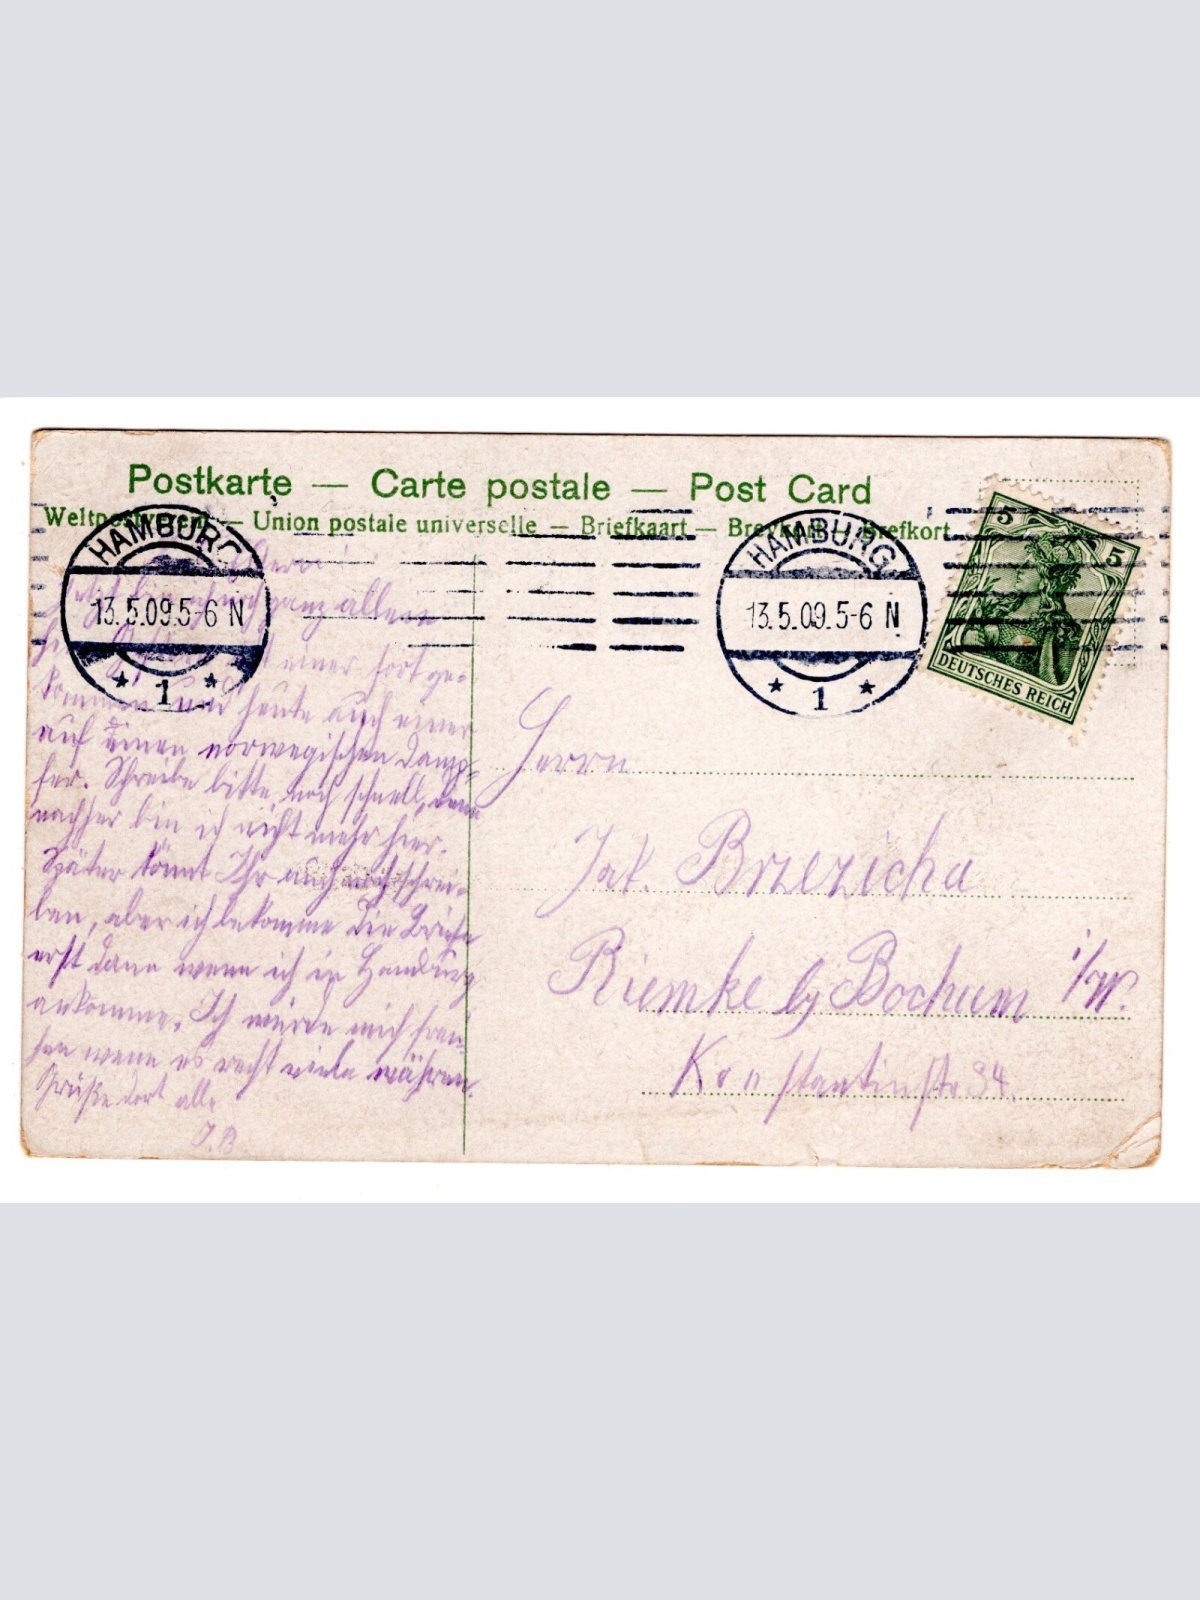 Postkarte — Carte postale — Post Card
— Union postale universelle — Briefkaart — Brefkort
HAMBURG
13.5.09.5-6 N
* 1 *
HAMBURG
13.5.09.5-6 N
* 1 *
5 5
DEUTSCHES REICH
ganz allein
einer fortge-
kommen und heute auch einer
auf einen norwegischen Damp-
fer. Schreibe bitte noch schnell, denn
nachher bin ich nicht mehr hier.
Später könnt Ihr auch noch schrei-
ben, aber ich bekomme die Briefe
erst dann wenn ich in Hamburg
ankomme. Ich würde mich freu-
en wenn es recht viele wären.
Grüße dort alle
J. B
Herrn
Jak. Brzezicha
Riemke by Bochum i/W.
Konstantinstr 34.